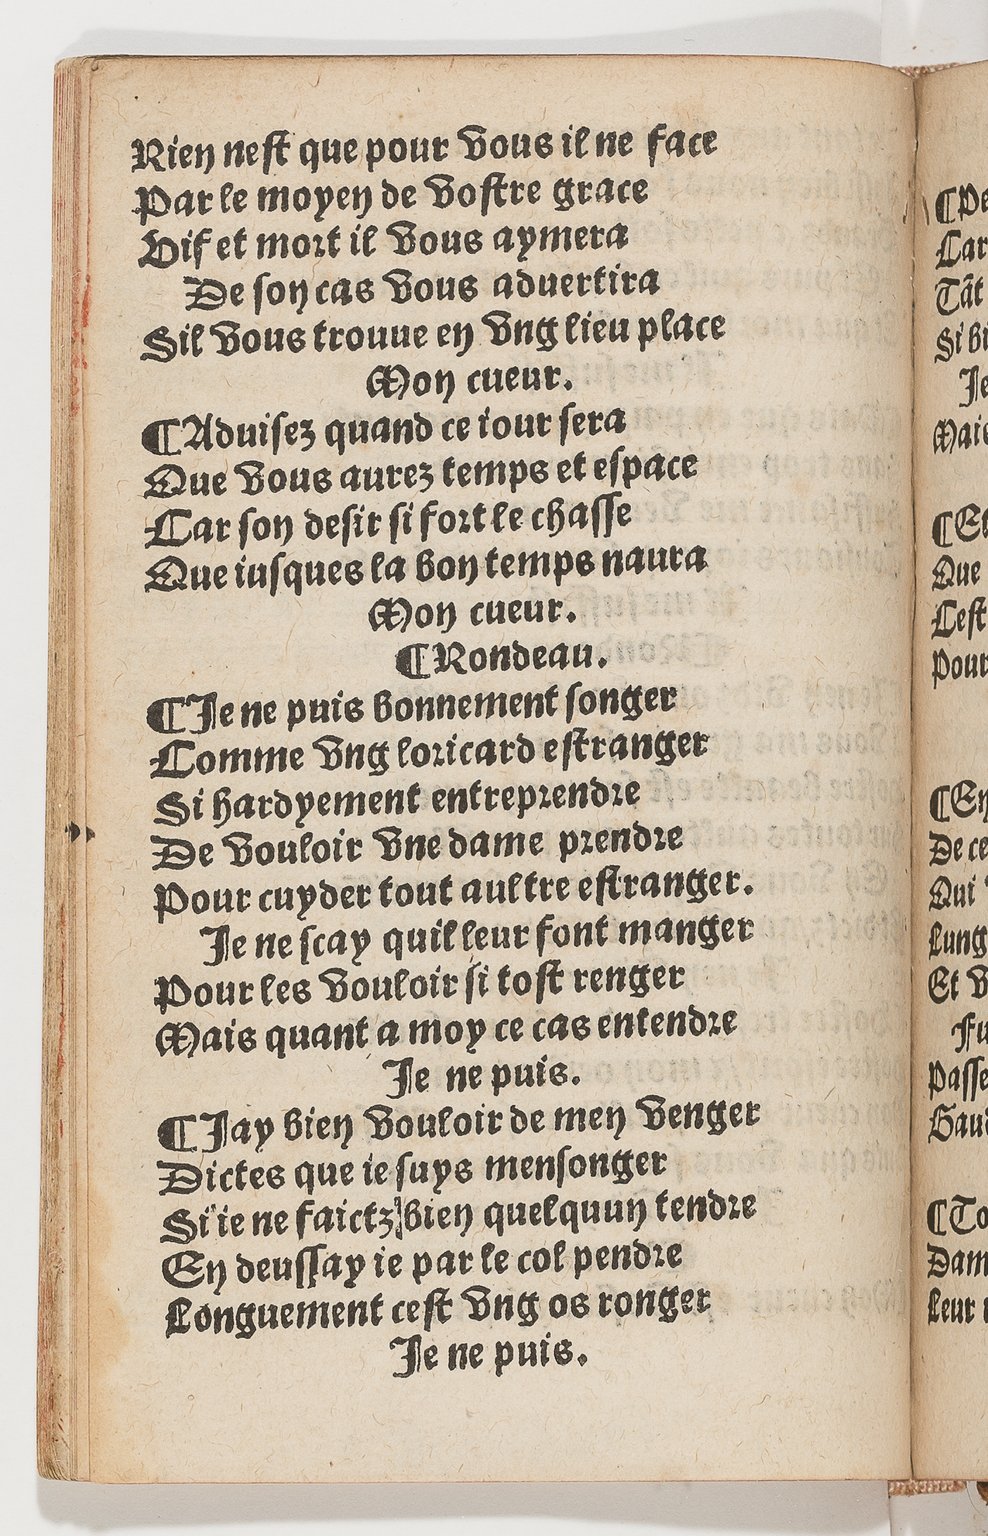 Rien nest que pour vous il ne face
Par le moyen de vostre grace
Vif et mort il vous aymera
De son cas vous aduertira
Sil vous trouue en vng lieu place
Mon cueur.
¶Aduisez quand ce iour sera
Que vous aurez temps et espace
Car son desir si fort le chasse
Que iusques la bon temps naura
Mon cueur.
¶Rondeau.
¶Je ne puis bonnement songer
Comme vng loricard estranger
Si hardyement entreprendre
De vouloir vne dame prendre
Pour cuyder tout aultre estranger.
Je ne scay quil leur font manger
Pour les vouloir si tost renger
Mais quant a moy ce cas entendre
Je ne puis.
¶Jay bien vouloir de men venger
Dictes que ie suys mensonger
Si ie ne faictz bien quelquun tendre
En deussay ie par le col pendre
Longuement cest vng os ronger
Je ne puis.
¶Pe
Car
Tãt
Si bi
Je
Mais
¶Et
Que
Cest
Pour
¶En
De ce
Qui
Lung
Et v
Fu
Passe
Gaud
¶To
Dam
Leur